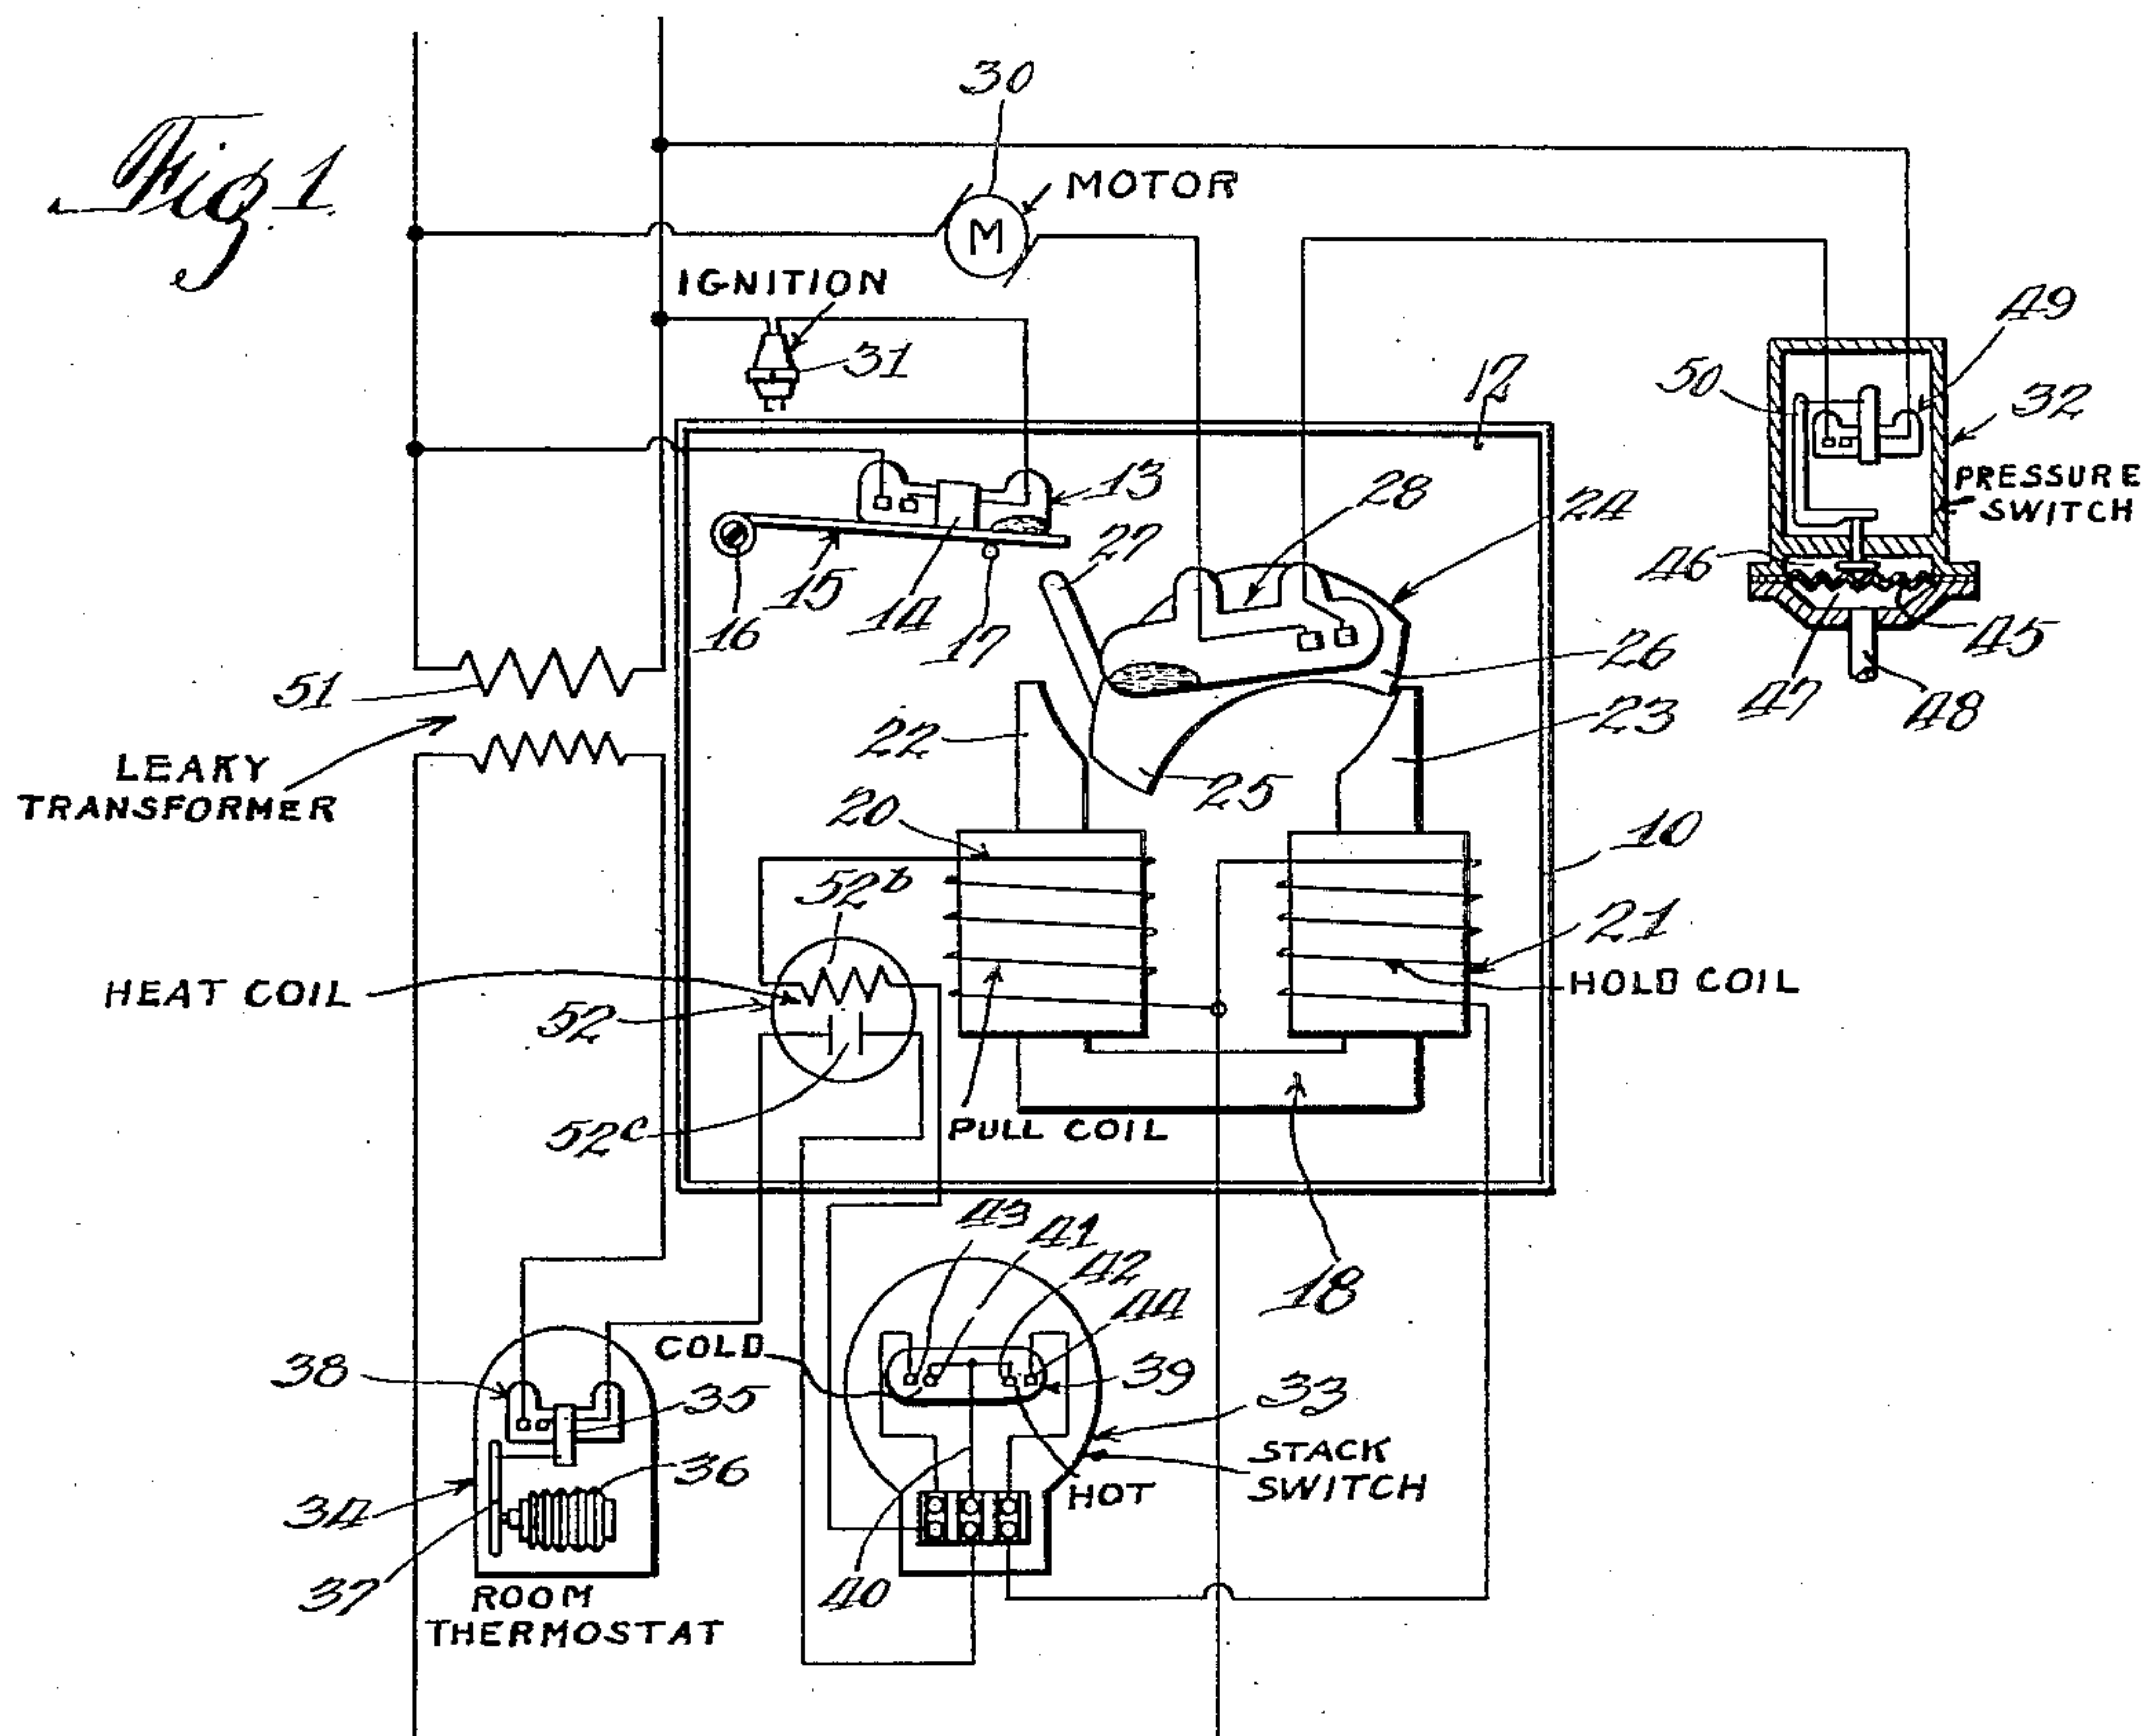 Fig. 1
30
MOTOR
M
IGNITION
31
49
50
32
PRESSURE
SWITCH
12
13
28
24
27
15
14
16
17
46
47
45
48
26
51
LEAKY
TRANSFORMER
22
23
25
20
10
52b
21
HEAT COIL
HOLD COIL
52
52c
PULL COIL
18
43
41
42
44
COLD
38
35
39
33
36
STACK
SWITCH
HOT
34
37
40
ROOM
THERMOSTAT